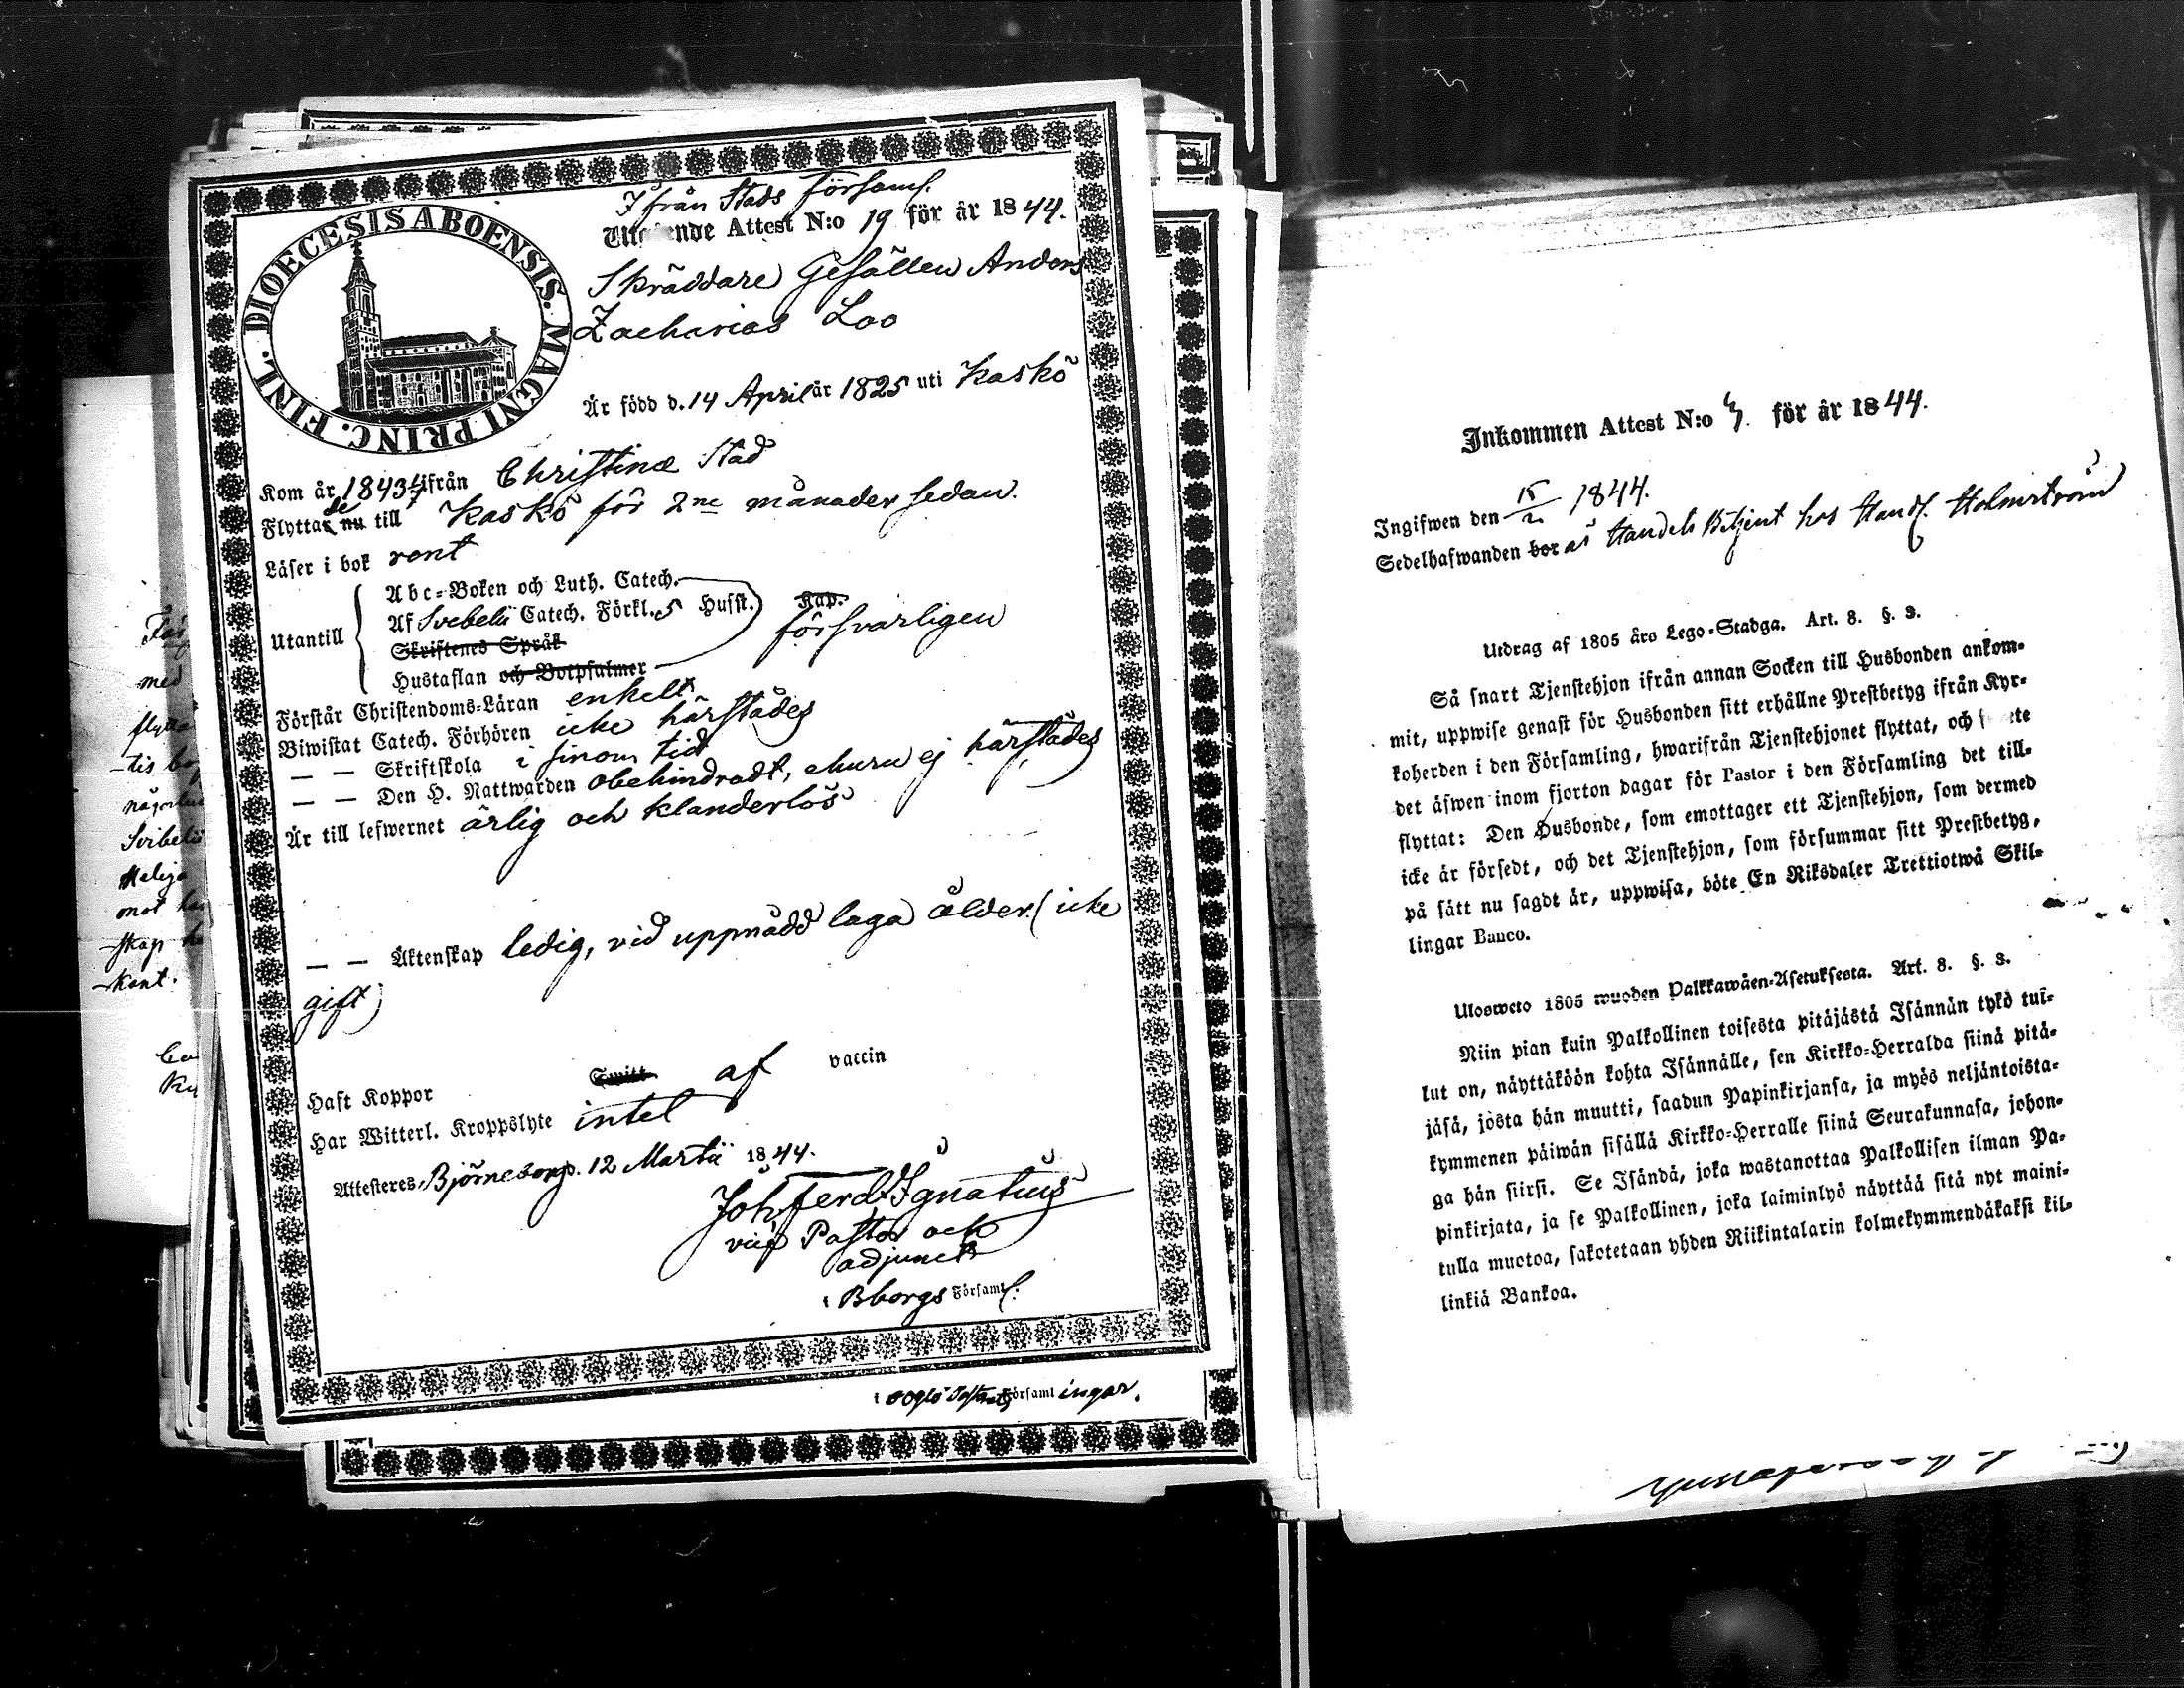 DIOECESIS ABOENSIS. MAGNI PRINC. FINL.
Ifrån Stads Församl.
Utgående Attest N:o 19 för år 1844.
Skräddare Gesällen Anders
Zacharias Loo
Är född d. 14 April år 1825 uti Kaskö
Kom år 1843 ifrån Christinæ Stad
Flyttade nu till Kaskö för 2ne månader sedan.
Läser i bok rent
Utantill
Abc-Boken och Luth. Catech.
Af Svebelii Catech. Förkl. 5 Hufst. Kap.
försvarligen
Skriftenes Språk
Hustaflan och Botpsalmer
Förstår Christendoms-Läran enkelt
Biwistat Catech. Förhören icke härstädes
— — Skriftskola i sinom tid
— — Den H. Nattwarden obehindradt, ehuru ej härstädes
Är till lefwernet ärlig och klanderlös
— — Äktenskap ledig, vid uppnådd laga ålder (icke
gift)
Haft Koppor af vaccin
Har Witterl. Kroppslyte intet
Attesteres, Björneborg. 12 Martii 1844.
Joh. Ferd. Ignatius
vice Pastor och
adjunct
i Bborgs Församl.
Församl ingar.
Inkommen Attest N:o för år 1844.
Ingifwen den 1844.
Sedelhafwanden bor as Handels Betjent hos Handl. Holmström
Utdrag af 1805 års Lego-Stadga. Art. 8. §. 3.
Så snart Tjenstehjon ifrån annan Socken till Husbonden ankom-
mit, uppwise genast för Husbonden sitt erhållne Prestbetyg ifrån Kyr-
koherden i den Församling, hwarifrån Tjenstehjonet flyttat, och
det äfwen inom fjorton dagar för Pastor i den Församling det till-
flyttat: Den Husbonde, som emottager ett Tjenstehjon, som dermed
icke är försedt, och det Tjenstehjon, som försummar sitt Prestbetyg,
på sätt nu sagdt är, uppwisa, böte En Riksdaler Trettiotwå Skil-
lingar Banco.
Ulosweto 1805 wuoden Palkkawäen-Asetuksesta. Art. 8. §. 3.
Niin pian kuin Palkollinen toisesta pitäjästä Isännän tykö tul-
lut on, näyttäköön kohta Isännälle, sen Kirkko-Herralda siinä pitä-
jäsä, josta hän muutti, saadun Papinkirjansa, ja myös neljäntoista-
kymmenen päiwän sisällä Kirkko-Herralle siinä Seurakunnasa, johon-
ga hän siirsi. Se Isändä, joka wastanottaa Palkollisen ilman Pa-
pinkirjata, ja se Palkollinen, joka laiminlyö näyttää sitä nyt maini-
tulla muotoa, sakotetaan yhden Riikintalarin kolmekymmendäkaksi kil-
linkiä Bankoa.